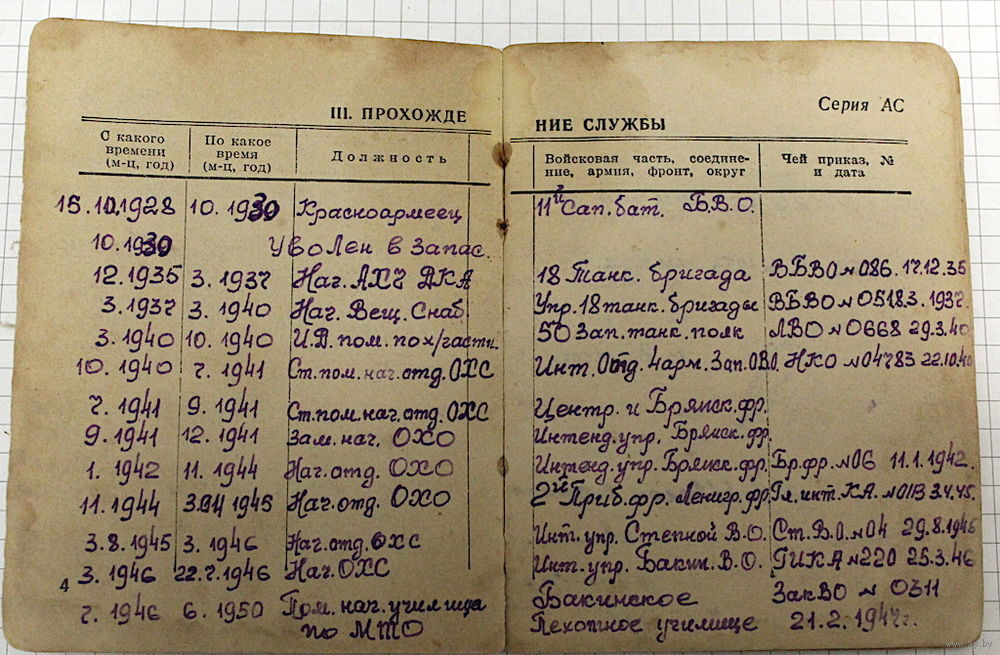 Серия АС
III. ПРОХОЖДЕНИЕ СЛУЖБЫ
С какого времени (м-ц, год) По какое время (м-ц, год) Должность Войсковая часть, соединение, армия, фронт, округ Чей приказ, № и дата
15.10.1928 10.1930 Красноармеец 11й Сап. бат. Б.В.О.
10.1930 Уволен в запас.
12.1935 3.1937 Нач. АХЧ ДКА 18 Танк. бригада ВБВО №086. 17.12.35
3.1937 3.1940 Нач. Вещ. Снаб Упр. 18 танк. бригады ВБВО №0518 3.1937.
3.1940 10.1940 И.Д. пом. по х/части. 50 Зап. танк. полк ЛВО №0668 29.3.40
10.1940 7.1941 Ст. пом. нач. отд. ОХС Инт. Отд. 4 арм. Зап. О.В.О. НКО №04783 22.10.40
7.1941 9.1941 Ст. пом. нач. отд. ОХС Центр. и Брянск. фр.
9.1941 12.1941 Зам. нач. ОХО Интенд. упр. Брянск. фр.
1.1942 11.1944 Нач. отд. ОХО Интенд. упр. Брянск. фр. Бр. фр. №06 11.1.1942.
11.1944 1945 Нач. отд. ОХО 2й Приб. фр. Ленигр. фр. Гл. инт. КА. №011В 3.4.45.
3.8.1945 3.1946 Нач. отд. ОХС Инт. упр. Степной В.О. Ст. В.О. №04 29.8.1946
3.1946 22.7.1946 Нач. ОХС Инт. упр. Бакин. В.О. ГИКА №220 25.3.46
7.1946 6.1950 Пом. нач. училища Бакинское ЗакВО № 0311
по МТО Пехотное училище 21.2.1947г.
4